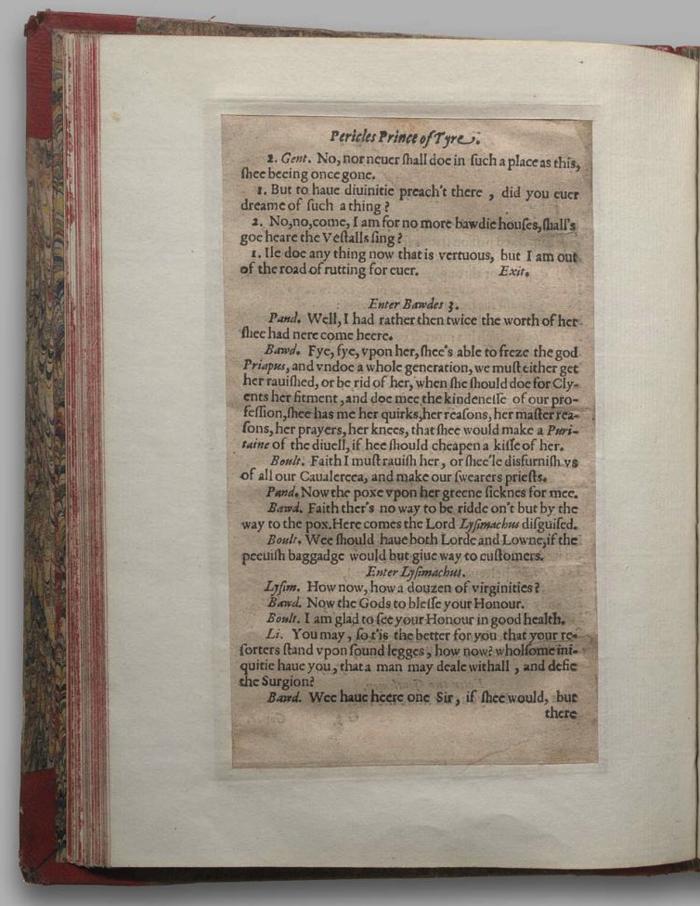 Pericles Prince of Tyre.
2. Gent. No, nor neuer ſhall doe in ſuch a place as this,
ſhee beeing once gone.
1. But to haue diuinitie preach't there , did you euer
dreame of ſuch a thing ?
2. No,no,come, I am for no more bawdie houſes,ſhall's
goe heare the Veſtalls ſing ?
1. Ile doe any thing now that is vertuous, but I am out
of the road of rutting for euer. Exit.
Enter Bawdes 3.
Pand. Well, I had rather then twice the worth of her
ſhee had nere come heere.
Bawd. Fye, fye, vpon her,ſhee's able to freze the god
Priapus, and vndoe a whole generation, we muſt either get
her rauiſhed, or be rid of her, when ſhe ſhould doe for Cly-
ents her fitment , and doe mee the kindeneſſe of our pro-
feſſion,ſhee has me her quirks,her reaſons, her maſter rea-
ſons, her prayers, her knees, that ſhee would make a Puri-
taine of the diuell, if hee ſhould cheapen a kiſſe of her.
Boult. Faith I muſt rauiſh her , or ſhee'le disfurniſh vs
of all our Caualereea, and make our ſwearers prieſts.
Pand. Now the poxe vpon her greene ſicknes for mee.
Bawd. Faith ther's no way to be ridde on't but by the
way to the pox.Here comes the Lord Lyſimachus diſguiſed.
Boult. Wee ſhould haue both Lorde and Lowne,if the
peeuiſh baggadge would but giue way to cuſtomers.
Enter Lyſimachus.
Lyſim. How now, how a douzen of virginities ?
Bawd. Now the Gods to bleſſe your Honour.
Boult. I am glad to ſee your Honour in good health.
Li. You may , ſo t'is the better for you that your re-
ſorters ſtand vpon ſound legges , how now? wholſome ini-
quitie haue you, that a man may deale withall , and defie
the Surgion?
Bawd. Wee haue heere one Sir, if ſhee would, but
there